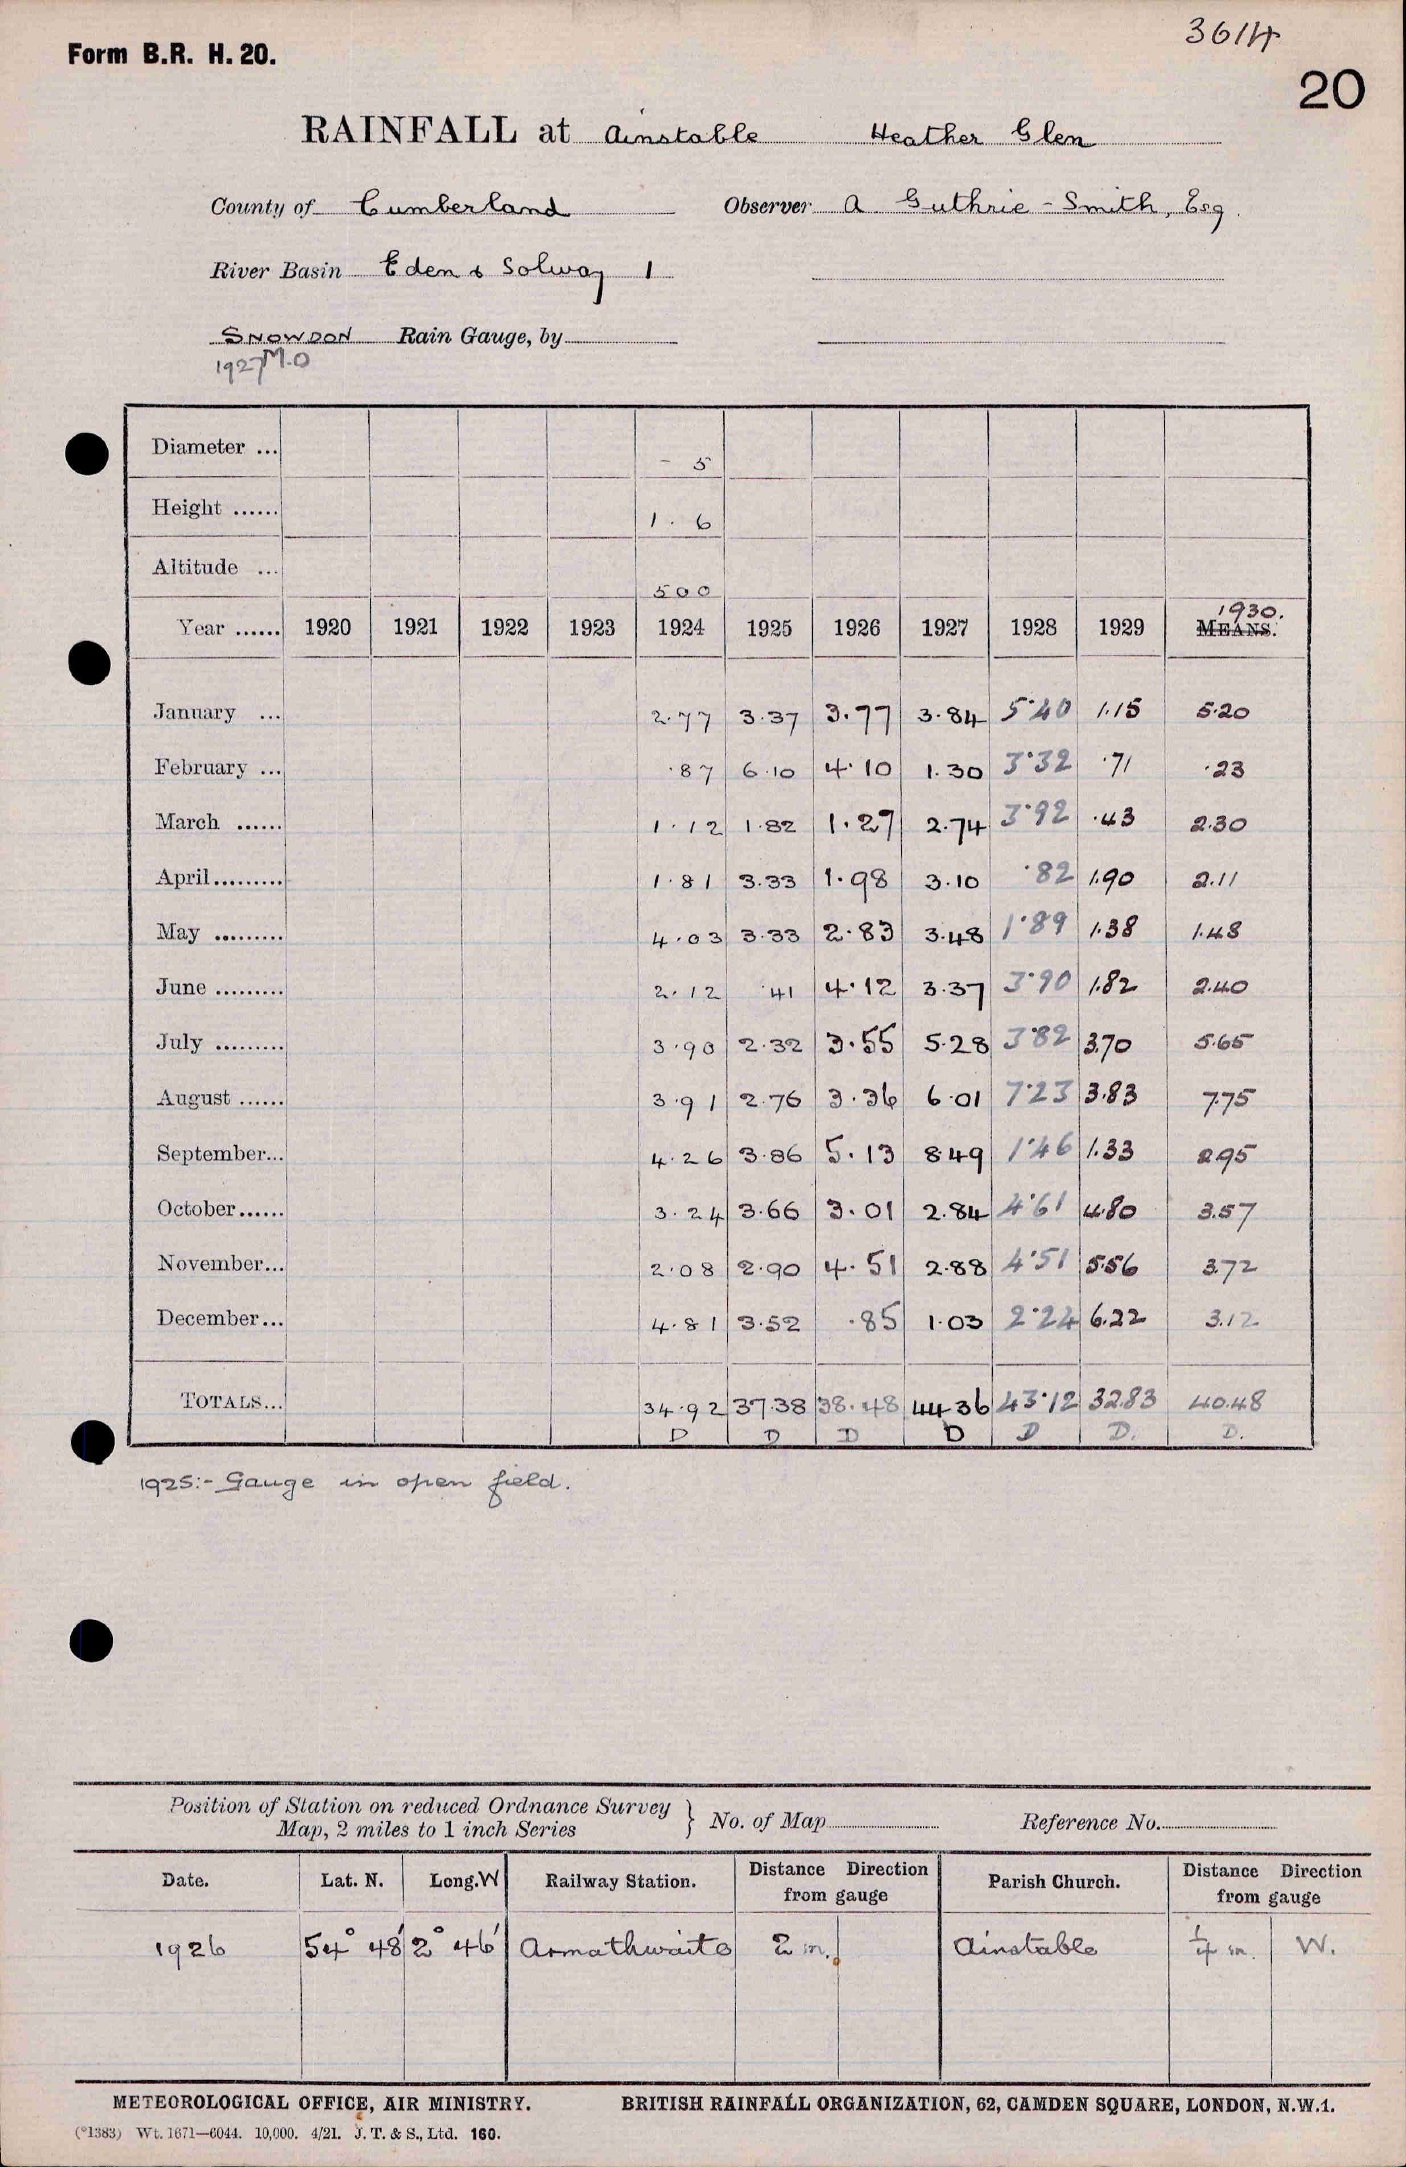 3614
Form B.R. H. 20.
20
RAINFALL at Ainstable Heather Glen
County of Cumberland Observer A Guthrie-Smith, Esq.
River Basin Eden & Solway 1
SNOWDON Rain Gauge, by
1927 M.O
Diameter ... - 5
Height ...... 1. 6
Altitude ... 500
Year ...... 1920 1921 1922 1923 1924 1925 1926 1927 1928 1929 MEANS. 1930.
January ... 2.77 3.37 3.77 3.84 5.40 1.15 5.20
February ... .87 6.10 4.10 1.30 3.32 .71 .23
March ...... 1.12 1.82 1.27 2.74 3.92 .43 2.30
April......... 1.81 3.33 1.98 3.10 .82 1.90 2.11
May ......... 4.03 3.33 2.83 3.48 1.89 1.38 1.48
June ......... 2.12 .41 4.12 3.37 3.90 1.82 2.40
July ......... 3.90 2.32 3.55 5.28 3.82 3.70 5.65
August ...... 3.91 2.76 3.36 6.01 7.23 3.83 7.75
September... 4.26 3.86 5.13 8.49 1.46 1.33 2.95
October...... 3.24 3.66 3.01 2.84 4.61 4.80 3.57
November... 2.08 2.90 4.51 2.88 4.51 5.56 3.72
December... 4.81 3.52 .85 1.03 2.24 6.22 3.12
TOTALS... 34.92 37.38 38.48 44.36 43.12 32.83 40.48
D D D D D D. D.
1925:- Gauge in open field.
Position of Station on reduced Ordnance Survey
Map, 2 miles to 1 inch Series } No. of Map Reference No.
Date. Lat. N. Long. W Railway Station. Distance Direction from gauge Parish Church. Distance Direction from gauge
1926 54° 48' 2° 46' Armathwaite 2 m. Ainstable ¼ m. W.
METEOROLOGICAL OFFICE, AIR MINISTRY. BRITISH RAINFALL ORGANIZATION, 62, CAMDEN SQUARE, LONDON, N.W.1.
(*1383) Wt. 1671—6044. 10,000. 4/21. J. T. & S., Ltd. 160.